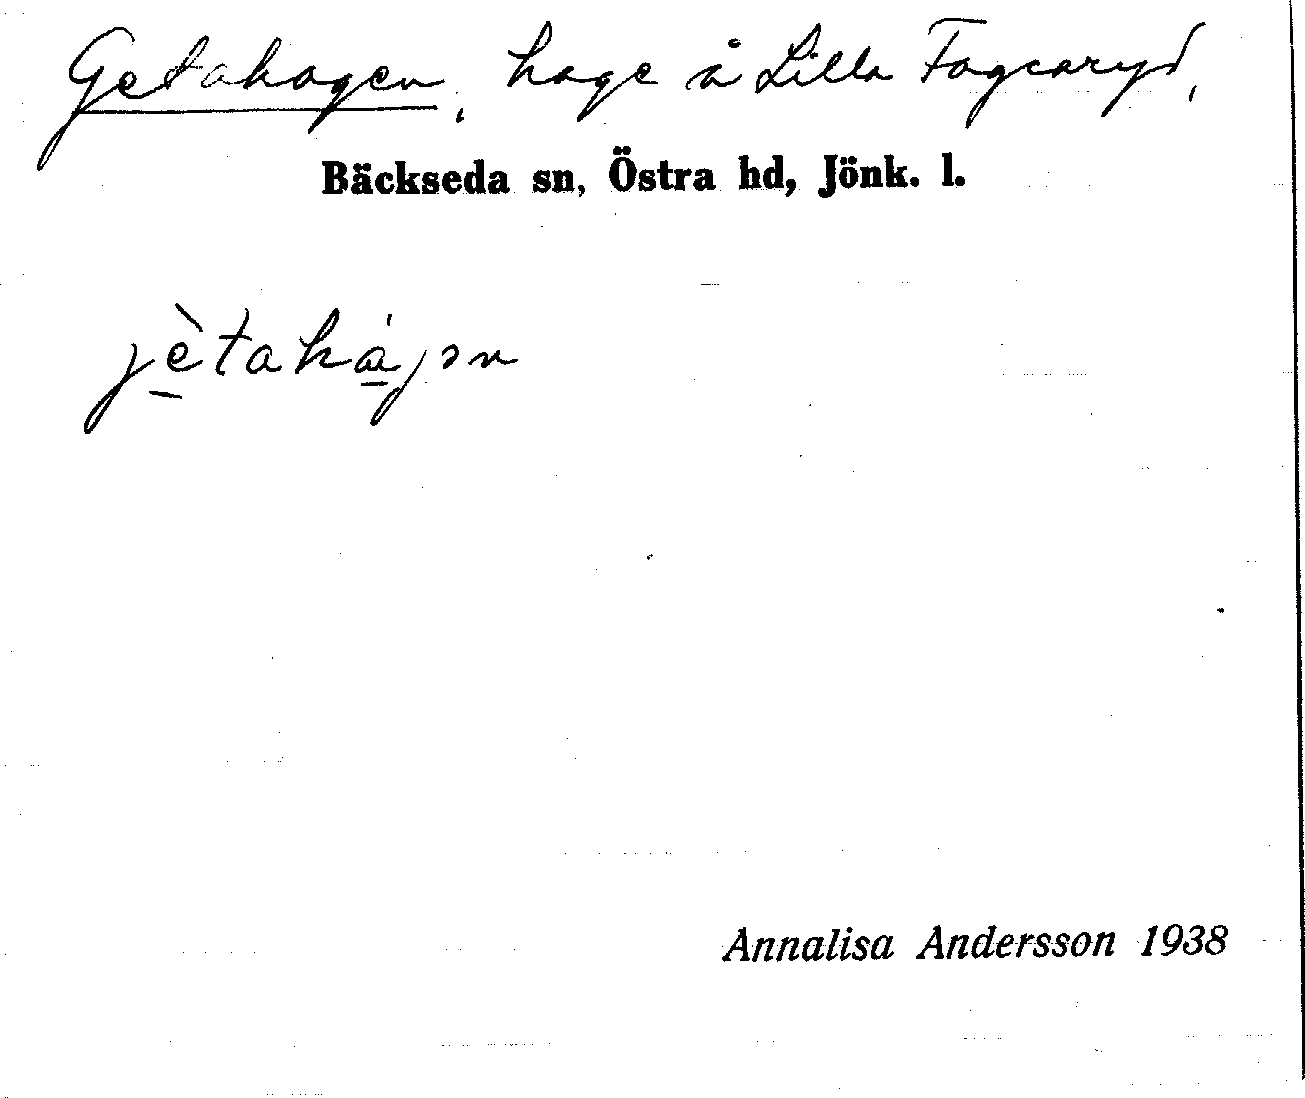 Getahagen, hage å Lilla Fagcaryd,
Bäckseda sn, Östra hd, Jönk. l.
jètahájən
Annalisa Andersson 1938